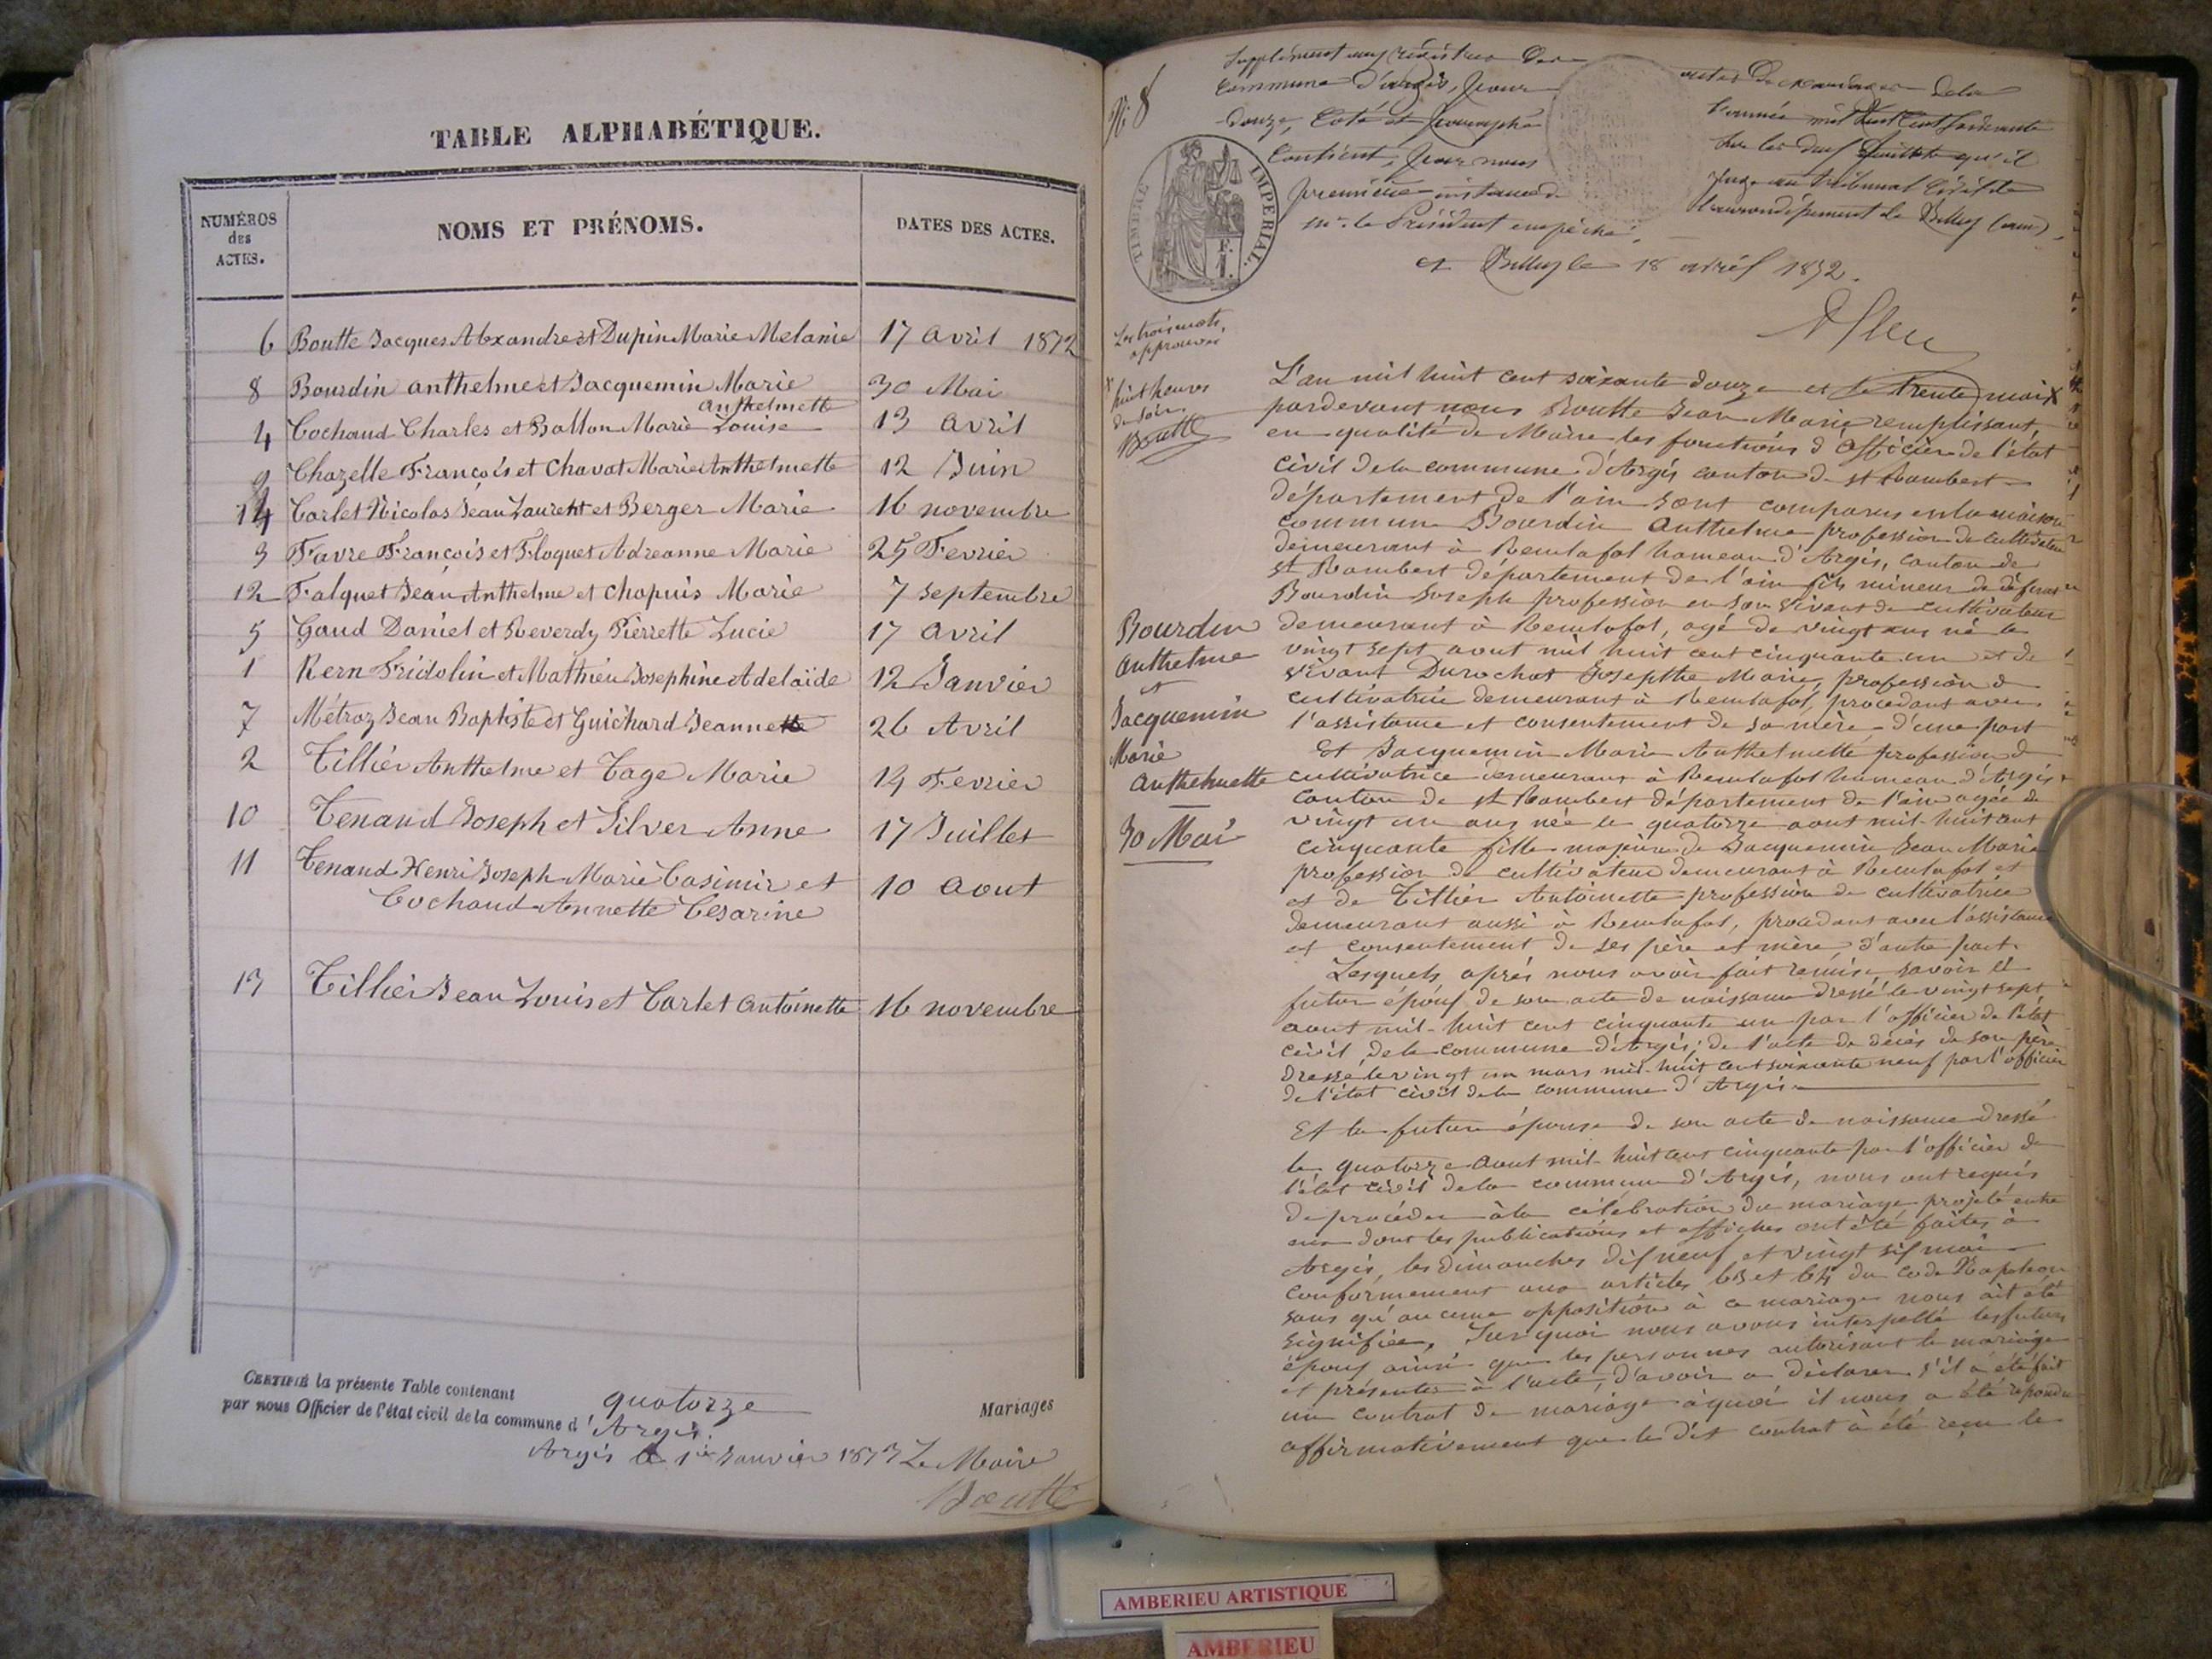 TABLE ALPHABÉTIQUE.
NUMÉROS des ACTES.
NOMS ET PRÉNOMS.
DATES DES ACTES.
6 Boutte Jacques Alexandre et Dupin Marie Melanie 17 avril 1872
8 Bourdin anthelme et Jacquemin Marie anthelmette 30 Mai
4 Cochand Charles et Ballon Marie Louise 13 avril
9 Chazelle François et Chavat Marie Anthelmette 12 Juin
14 Carlet Nicolas Jean Laurent et Berger Marie 16 novembre
3 Favre François et Floquet Adreanne Marie 25 Fevrier
12 Falquet Jean Anthelme et Chapuis Marie 7 septembre
5 Gaud Daniel et Reverdy Pierrette Lucie 17 avril
1 Kern Fridolin et Mathieu Josephine Adelaïde 12 Janvier
7 Métroz Jean Baptiste et Guichard Jeannette 26 Avril
2 Tillier Anthelme et Tage Marie 14 Fevrier
10 Tenand Joseph et Silver Anne 17 Juillet
11 Tenand Henri Joseph Marie Casimir et 10 aout
Cochand Annette Cesarine
13 Tillier Jean Louis et Carlet Antoinette 16 novembre
CERTIFIÉ la présente Table contenant quatorze Mariages
par nous Officier de l'état civil de la commune d'Argis.
Argis le 1er Janvier 1873 Le Maire
Boutte
N° 8
Supplément aux registres des actes de mariages de la
commune d'argis, pour l'année mil huit cent soixante
douze, Coté et paraphé
contient, par nous Juge au tribunal civil de
première instance de l'arrondissement de Belley (ain)
mr. le Président empêché.
TIMBRE IMPERIAL.
F.
1.
et Belley le 18 avril 1872.
Les trois mots,
approuvés
x huit heures
du soir
Boutte
Bourdin
Anthelme
et
Jacquemin
Marie
Anthelmette
30 Mai
L'an mil huit cent soixante douze et le trente mai x
pardevant nous Boutte Jean Marie remplissant,
en qualité de Maire les fonctions d'officier de l'état
civil de la commune d'Argis canton de st Rambert
département de l'ain sont comparus en la maison
commune Bourdin Anthelme profession de cultivateur
demeurant à Reculafol hameau d'Argis, canton de
st Rambert département de l'ain fils mineur de défunt
Bourdin Joseph profession en son vivant de cultivateur
demeurant à Reculafol, agé de vingt ans né le
vingt sept aout mil huit cent cinquante un et de
vivant Durochat Josepthe Marie, profession de
cultivatrice demeurant à Reculafol, procédant avec
l'assistance et consentement de sa mère, d'une part
Et Jacquemin Marie Anthelmette profession de
cultivatrice demeurant à Reculafol hameau d'Argis
canton de st Rambert département de l'ain agée de
vingt un ans née le quatorze aout mil huit cent
cinquante fille majeure de Jacquemin Jean Marie
profession de cultivateur demeurant à Reculafol et
et de Tillier Antoinette profession de cultivatrice
demeurant aussi à Reculafol, procédant avec l'assistance
et consentement de ses père et mère, d'autre part.
Lesquels après nous avoir fait remise, savoir le
futur époux de son acte de naissance dressé le vingt sept
aout mil huit cent cinquante un par l'officier de l'état
civil de la commune d'Argis; de l'acte de décès de son père
dressé le vingt un mars mil huit cent soixante neuf par l'officier
de l'état civil de la commune d'Argis
Et la future épouse de son acte de naissance dressé
le quatorze Aout mil huit cent cinquante par l'officier de
l'état civil de la commune d'Argis, nous ont requis
de procéder à la célébration du mariage projeté entre
eux dont les publications et affiches ont été faites à
Argis, les dimanches dix neuf et vingt six mai
conformement aux articles 63 et 64 du code Napoleon
sans qu'aucune opposition à ce mariage nous ait été
signifiée, Sur quoi nous avons interpellé les futurs
époux ainsi que les personnes autorisant le mariage
et présentes à l'acte, d'avoir a déclarer s'il a été fait
un contrat de mariage à quoi il nous a été répondu
affirmativement que le dit contrat à été reçu le
AMBERIEU ARTISTIQUE
AMBERIEU